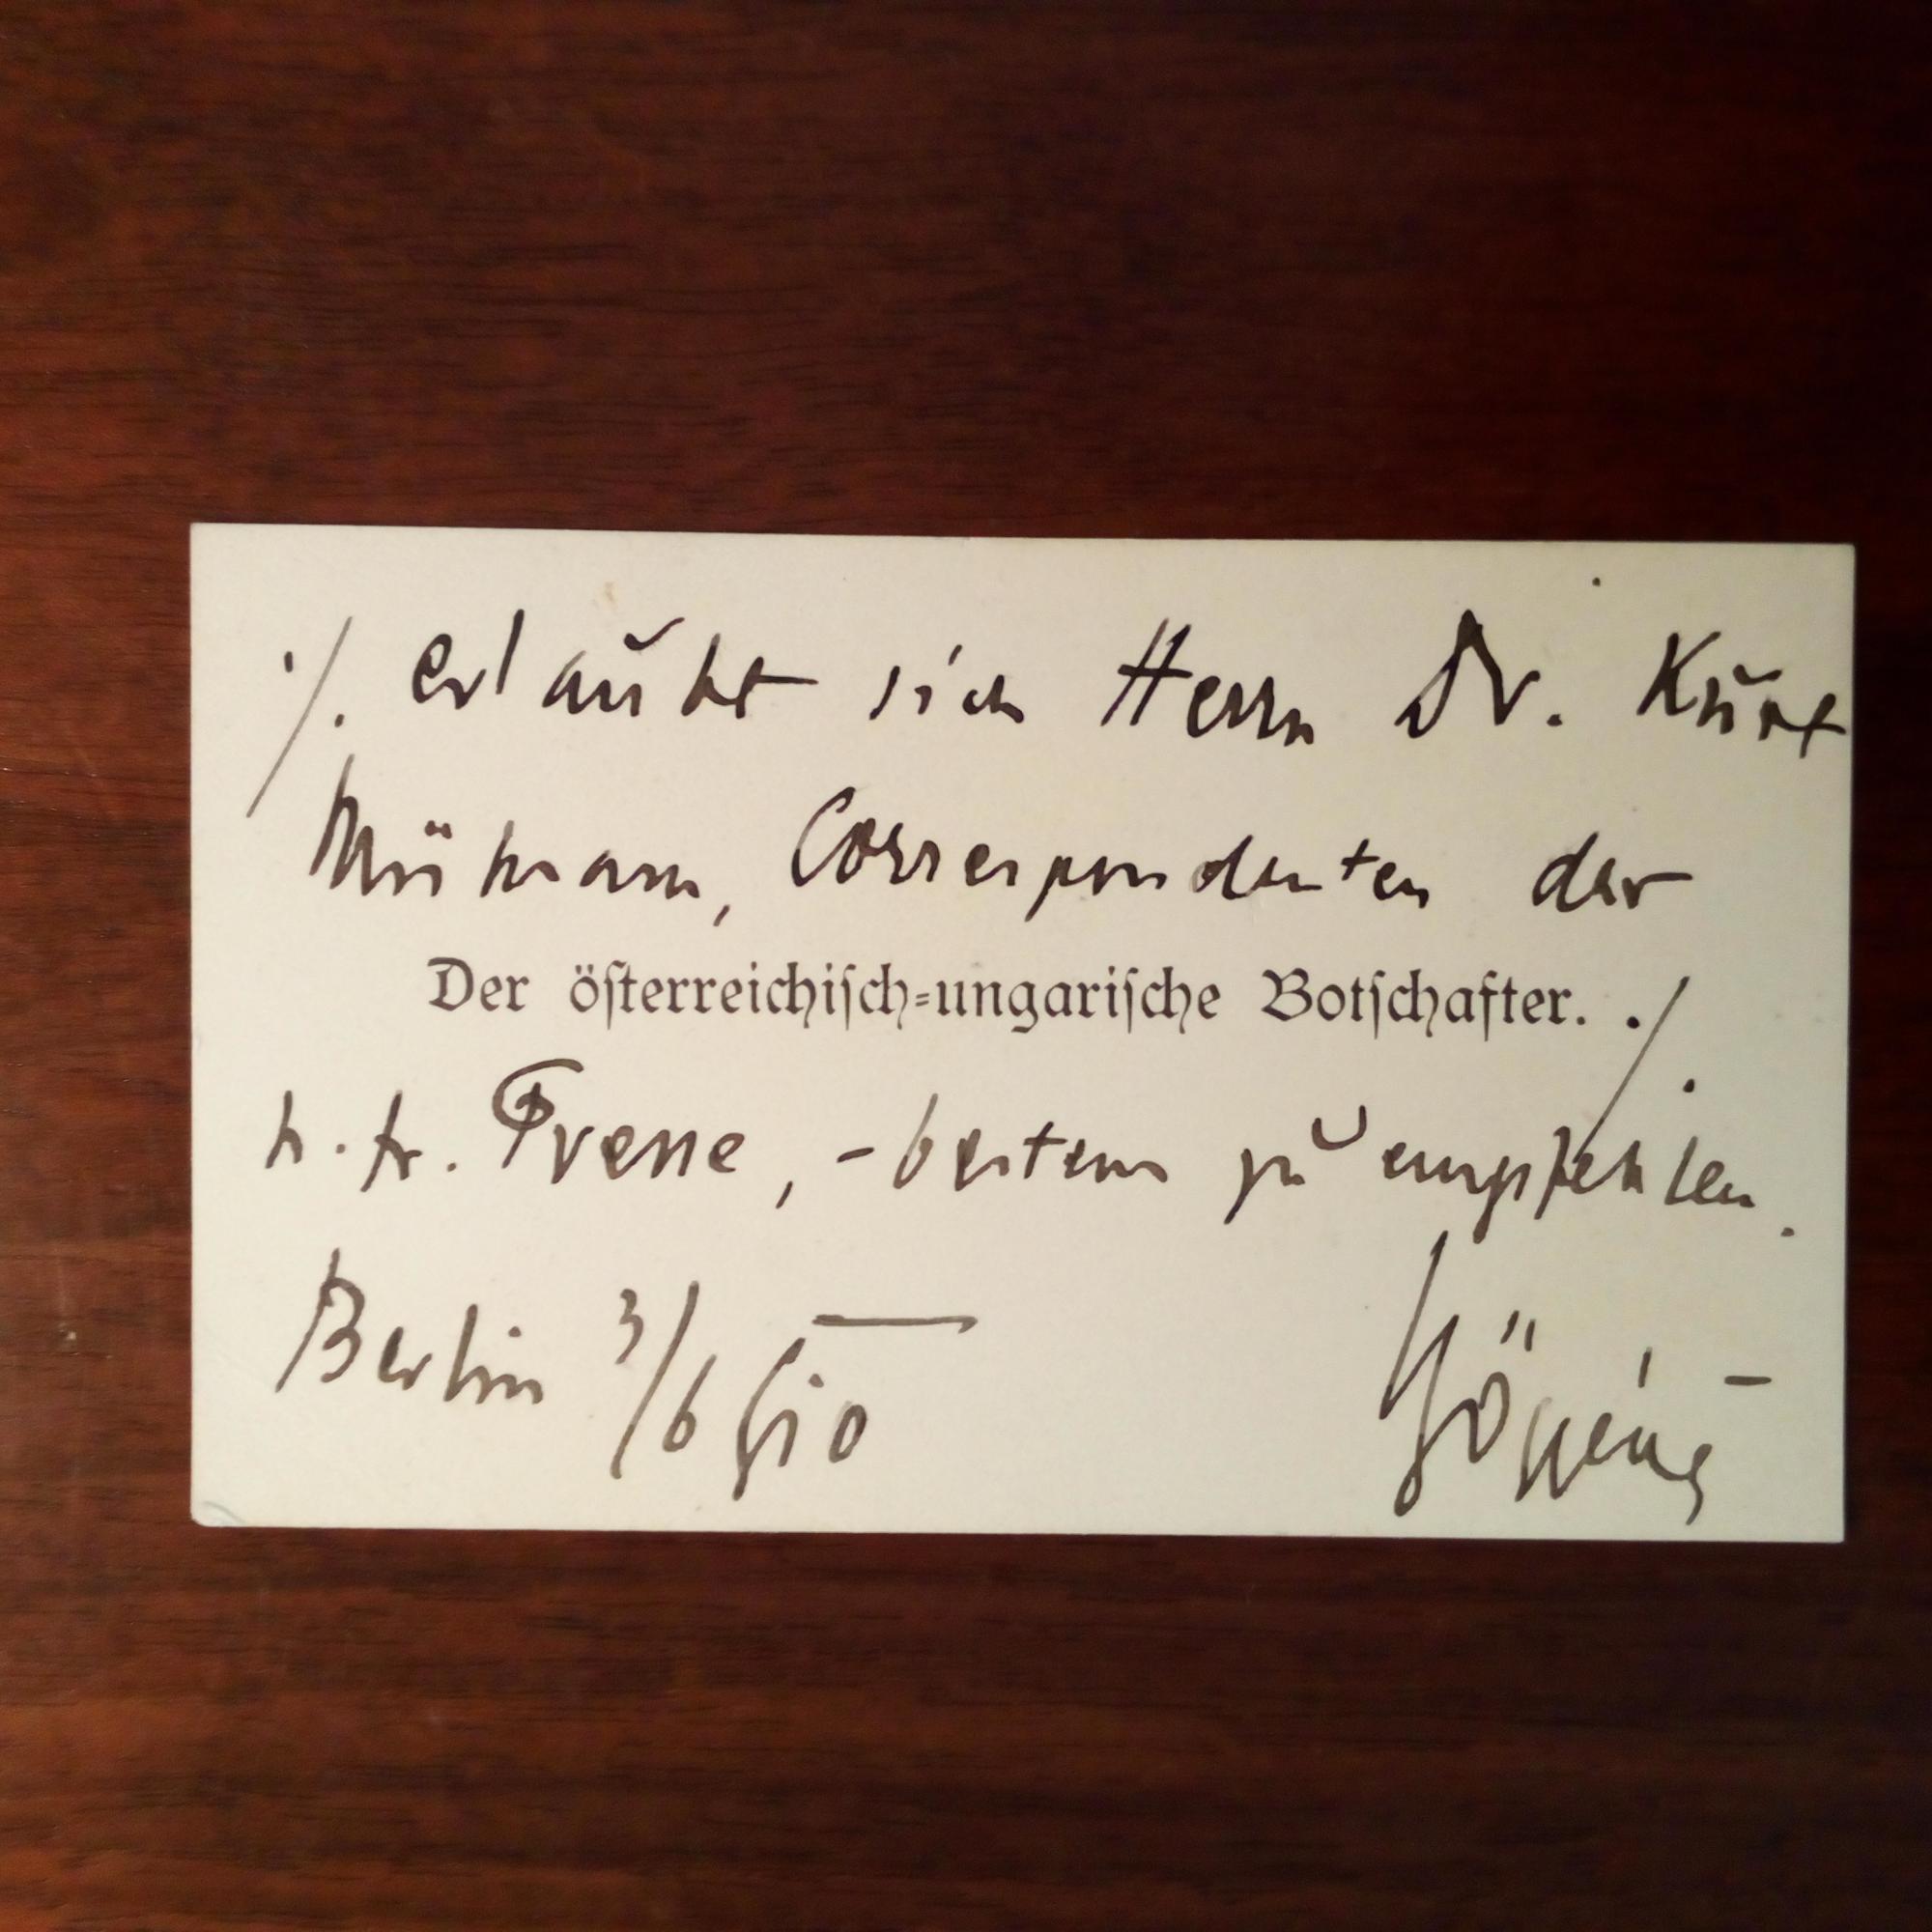 ./. erlaubt sich Herrn Dr. Kurt
Mühsam, Correspondenten der
Der österreichisch-ungarische Botschafter. ./.
n. fr. Presse, - bestens zu empfehlen.
Berlin 3/6